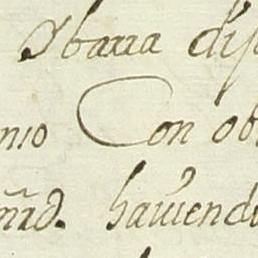 Ybarra dis
nio Con ob
mrd. haviend